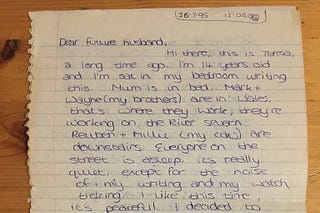 26·7·95 12·06am
Dear future husband,
Hi there, this is Teresa,
a long time ago. I'm 14 years old
and I'm sat in my bedroom writing
this. Mum is in bed, Mark +
Wayne (my brothers) are in Wales,
that's where they work, they're
working on the River Severn.
Reuben + Millie (my cats) are
downstairs. Everyone on the
street is asleep, it's really
quiet, except for the noise
of my writing and my watch
ticking. I like this time,
it's peaceful. I decided to